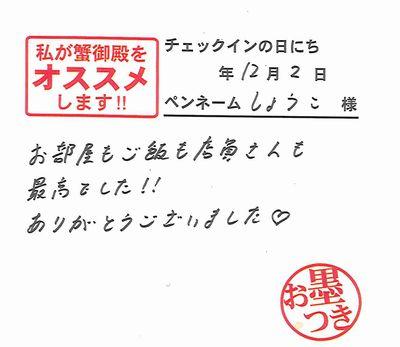 私が蟹御殿を
オススメ
します!!
チェックインの日にち
年12月2日
ペンネーム しょうこ 様
お部屋もご飯も店員さんも
最高でした!!
ありがとうございました♡
お墨つき